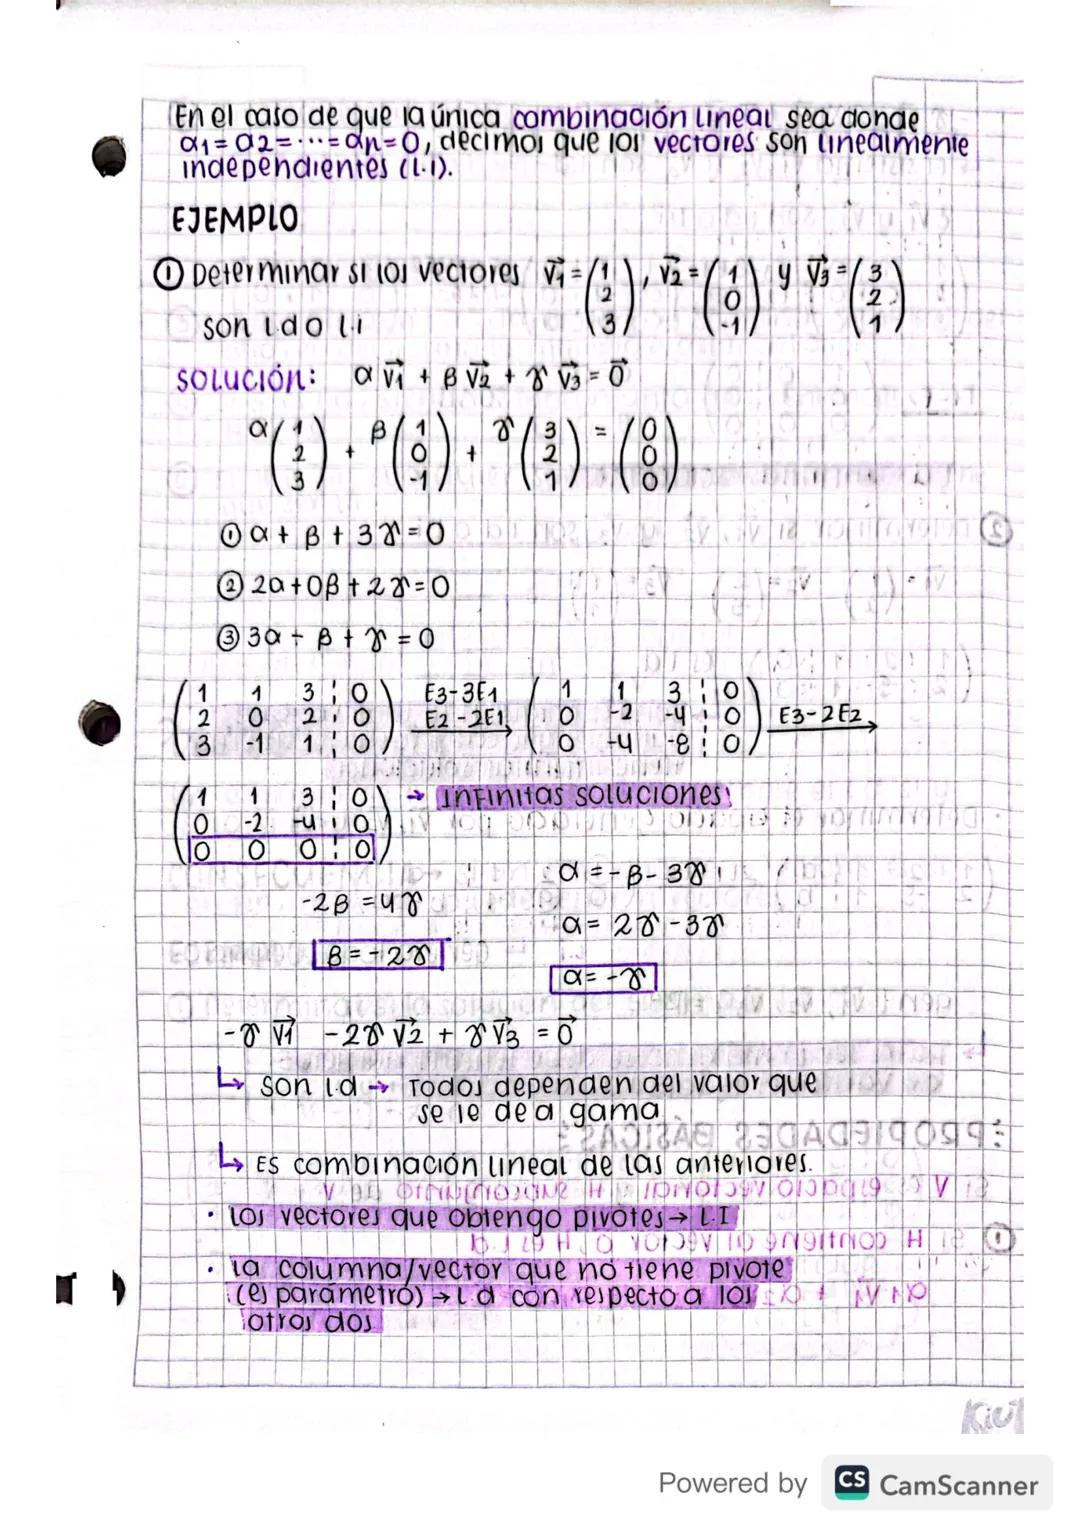 En el caso de que la única combinación lineal sea donde
α1 = α2 = ··· = αn = 0, decimos que los vectores son linealmente
independientes (l.i).
EJEMPLO
① Determinar si los vectores v1 = (1 2 3), v2 = (1 0 -1) y v3 = (3 2 1)
son l.d o l.i
SOLUCIÓN: α v1 + β v2 + γ v3 = 0
α (1 2 3) + β (1 0 -1) + γ (3 2 1) = (0 0 0)
① α + β + 3γ = 0
② 2α + 0β + 2γ = 0
③ 3α - β + γ = 0
(1 1 3 ¦ 0) E3-3E1 (1 1 3 ¦ 0)
(2 0 2 ¦ 0) E2-2E1 → (0 -2 -4 ¦ 0) E3-2E2 →
(3 -1 1 ¦ 0) (0 -4 -8 ¦ 0)
(1 1 3 ¦ 0) → Infinitas soluciones
(0 -2 -4 ¦ 0)
(0 0 0 ¦ 0)
α = -β - 3γ
-2β = 4γ
α = 2γ - 3γ
β = -2γ
α = -γ
-γ v1 - 2γ v2 + γ v3 = 0
↳ son l.d → Todos dependen del valor que
se le de a gama
↳ Es combinación lineal de las anteriores.
· Los vectores que obtengo pivotes → L.I
· La columna/vector que no tiene pivote
(es parámetro) → L.d con respecto a los
otros dos
Powered by CS CamScanner